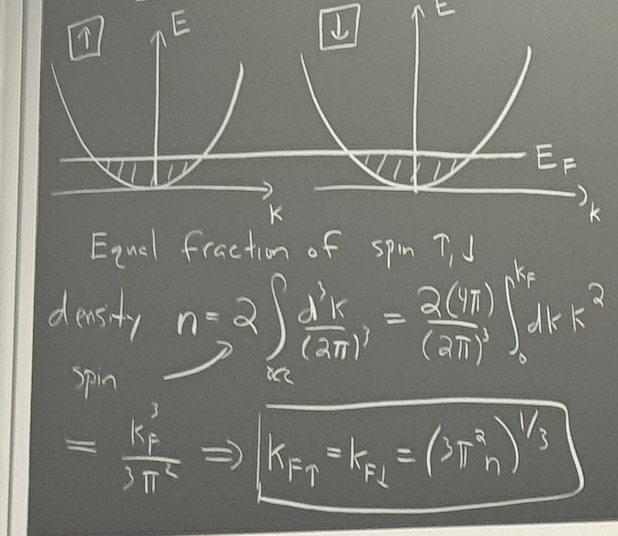 ↑ E ↓ E
E_F
k k
Equal fraction of spin ↑,↓
density n = 2 ∫_occ d³k/(2π)³ = 2(4π)/(2π)³ ∫₀^{k_F} dk k²
spin
= k_F³/3π² ⇒ k_F↑ = k_F↓ = (3π²n)^{1/3}